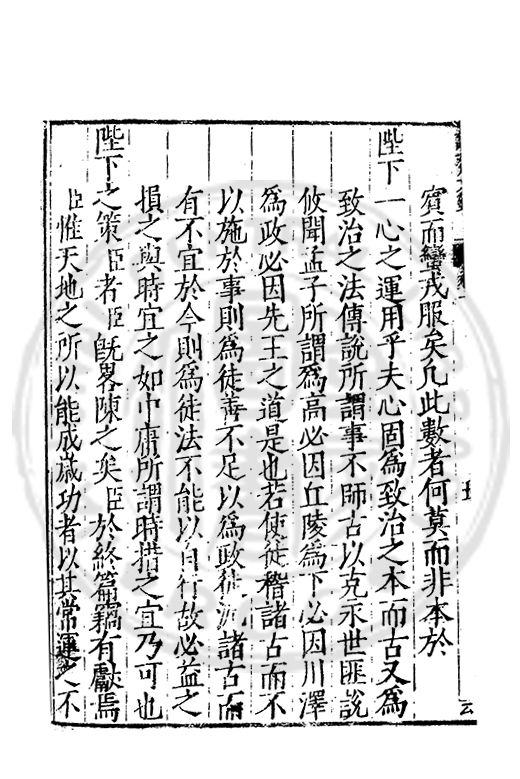 賓而蠻戎服矣凡此數者何莫而非本於
陛下一心之運用乎夫心固爲致治之本而古又爲
致治之法傳說所謂事不師古以克永世匪說
攸聞孟子所謂爲高必因丘陵爲下必因川澤
爲政必因先王之道是也若使徒稽諸古而不
以施於事則爲徒善不足以爲政徒泥諸古而
有不宜於今則爲徒法不能以自行故必益之
損之與時宜之如中庸所謂時措之宜乃可也
陛下之策臣者臣旣畧陳之矣臣於終篇竊有獻焉
臣惟天地之所以能成歲功者以其常運之不